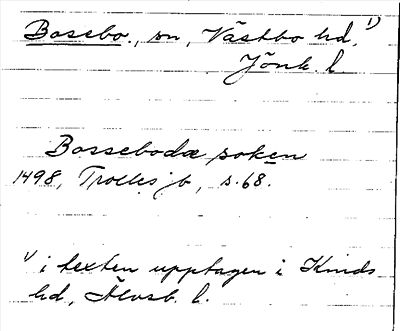 Bosebo., sn, Västbo hd, 1)
Jönk. l.
Bossebodæ soken
1498, Trolles jb, s. 68.
1) i texten upptagen i Kinds
hd, Älvsb. l.